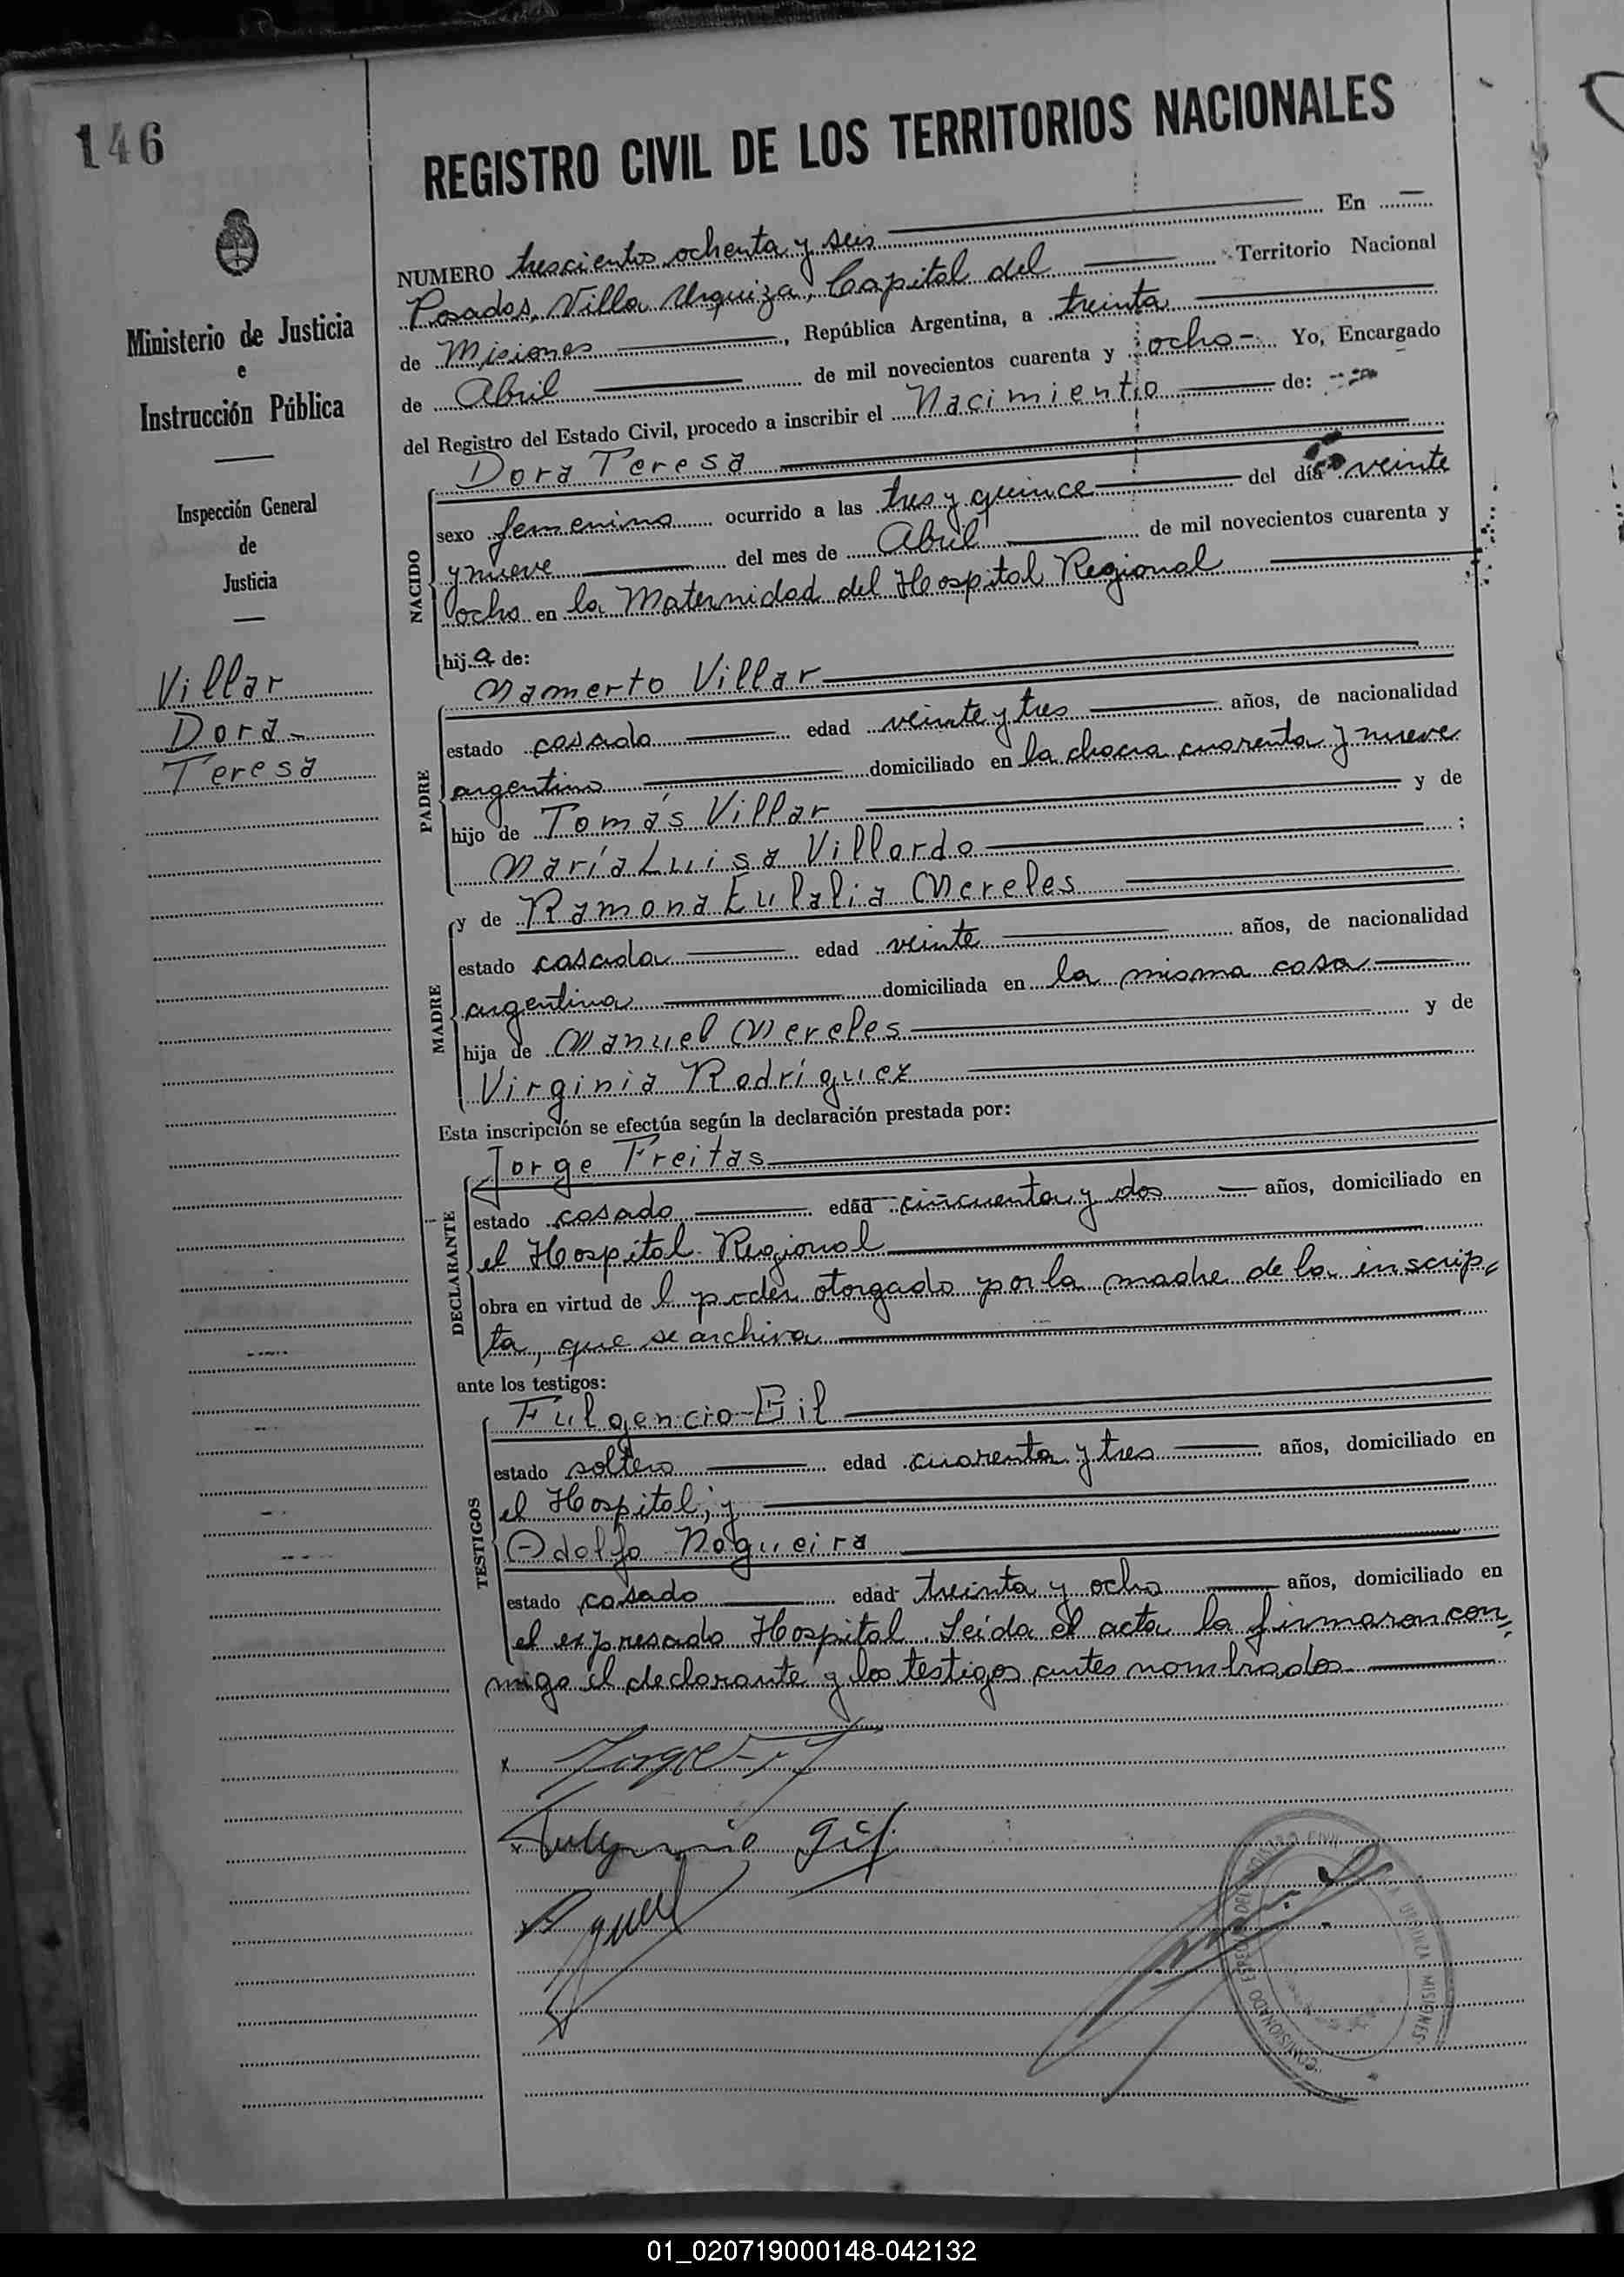 146
REGISTRO CIVIL DE LOS TERRITORIOS NACIONALES
Ministerio de Justicia
e
Instrucción Pública
Inspección General
de
Justicia
Villar
Dora
Teresa
NUMERO trescientos ochenta y seis En
Posadas, Villa Urquiza, Capital del Territorio Nacional
de Misiones, República Argentina, a treinta
de Abril de mil novecientos cuarenta y ocho Yo, Encargado
del Registro del Estado Civil, procedo a inscribir el Nacimiento de:
NACIDO
Dora Teresa
sexo femenino ocurrido a las tres y quince del día veinte
y nueve del mes de Abril de mil novecientos cuarenta y
ocho en la Maternidad del Hospital Regional
hija de:
PADRE
Mamerto Villar
estado casado edad veinte y tres años, de nacionalidad
argentino domiciliado en la chacra cuarenta y nueve
hijo de Tomás Villar y de
María Luisa Villordo ;
MADRE
y de Ramona Eulalia Mereles
estado casada edad veinte años, de nacionalidad
argentina domiciliada en la misma casa
hija de Manuel Mereles y de
Virginia Rodríguez
Esta inscripción se efectúa según la declaración prestada por:
DECLARANTE
Jorge Freitas
estado casado edad cincuenta y dos años, domiciliado en
el Hospital Regional
obra en virtud de l poder otorgado por la madre de la inscrip-
ta, que se archiva
ante los testigos:
TESTIGOS
Fulgencio Gil
estado soltero edad cuarenta y tres años, domiciliado en
el Hospital; y
Adolfo Nogueira
estado casado edad treinta y ocho años, domiciliado en
el expresado Hospital. Leída el acta la firmaron con-
migo el declarante y los testigos antes nombrados
Fulgencio Gil
COMISIONADO ESPECIAL DEL REGISTRO CIVIL
VILLA URQUIZA MISIONES
01_020719000148-042132